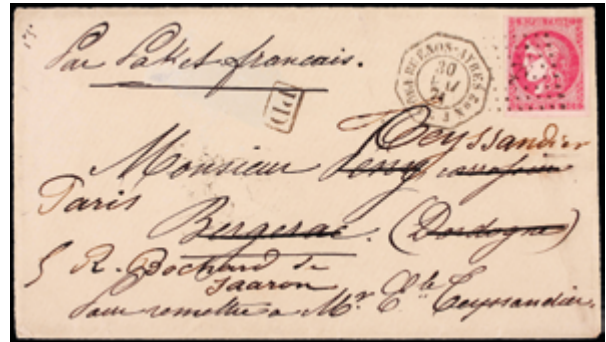 Par Paket français.
BUENOS-AYRES
30
MAI
71
PD
Teyssandier
Monsieur
Paris
Bergerac. (Dordogne)
5 R. Bochard de
Saaron
Pour remettre a Mr Teyssandier.